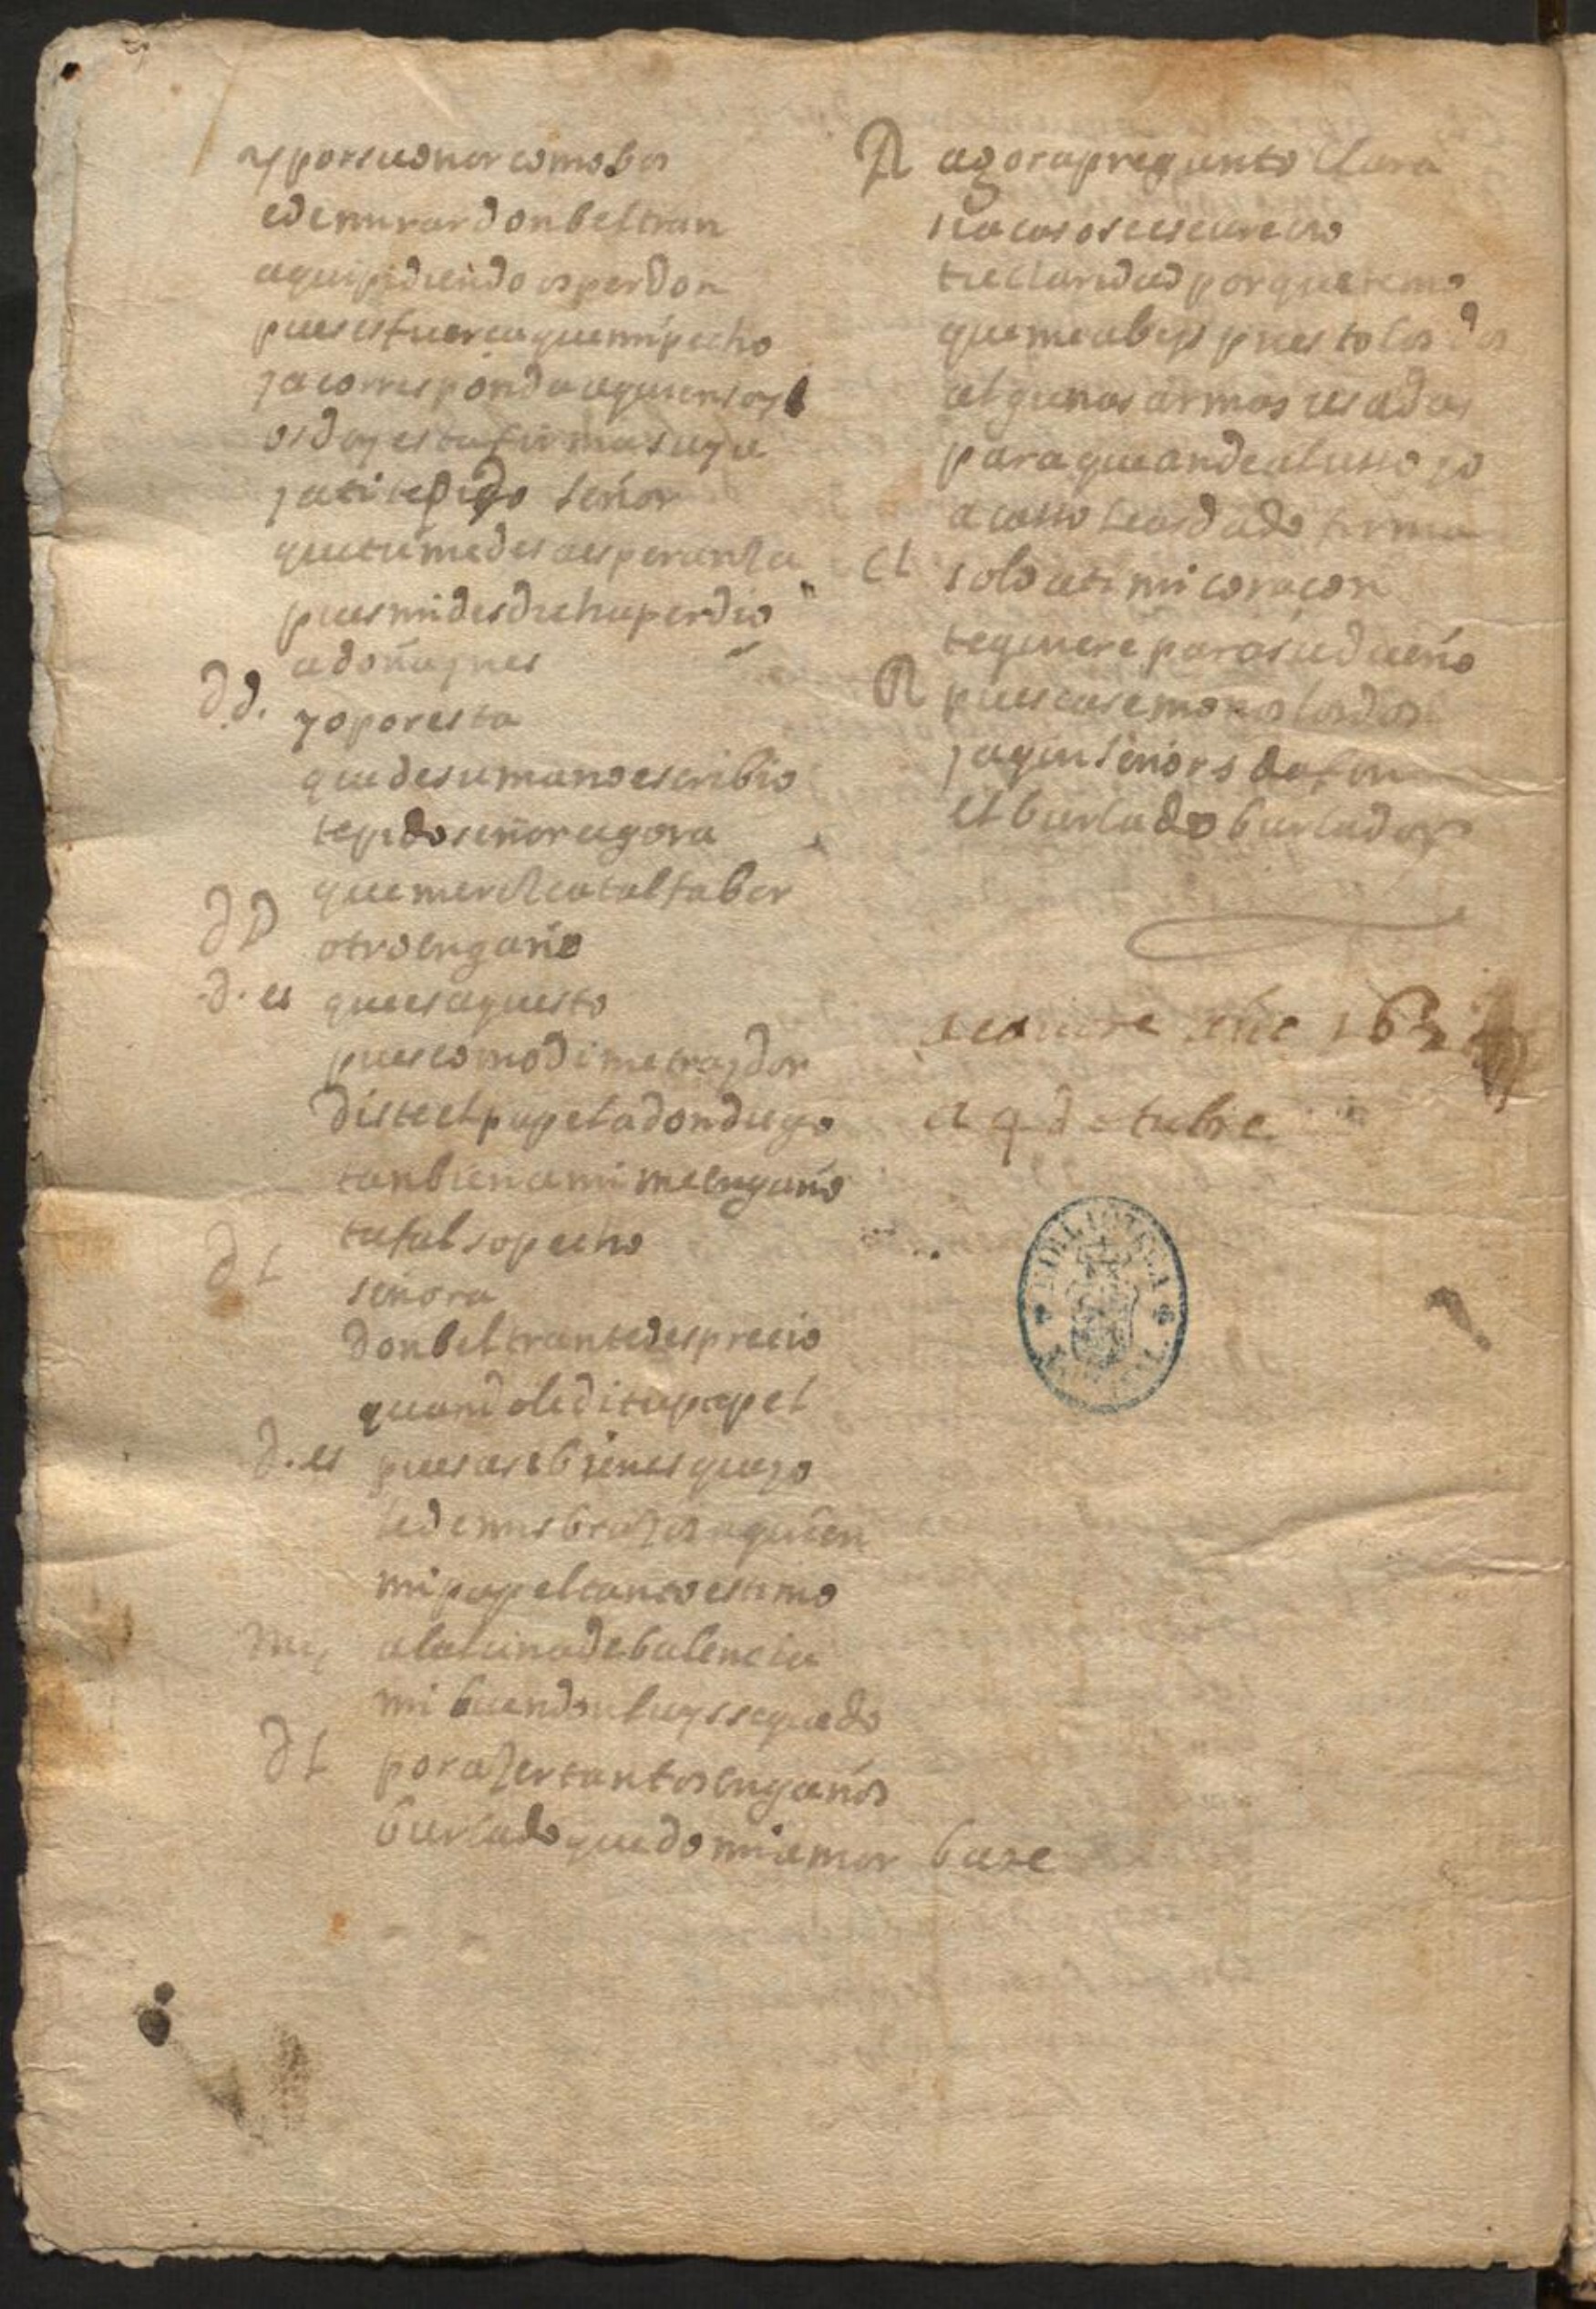 y por su onor como bos
e de mirar don beltran
aqui pidiendo os perdon
pues es fuerça que mi pecho
ya corresponda a quien soy
os doy esta firma suya
y a ti te pido señor
que tu me des a esperanza
pues mi desdicha perdio
a doña ynes
d d. yo por esta
que de su mano escribio
te pido señor agora
que merezca tal fabor
d P otro engaño
d. es que es aquesto
pues como dime traydor
diste el papel a don diego
tanbien a mi me engaño
tu falso pecho
d L señora
don beltran te desprecio
quando le di tu papel
d. es pues asi bienes que yo
le de mis brazos a quien
mi papel tanto estimo
a la luna de balencia
mi buen don luys se quedo
d L por azer tantos engaños
burlado quedo mi amor base
R agora pregunto Clara
si acaso se escurecio
tu claridad porque temo
que me abeys puesto los dos
algunas armas usadas
para que ande al usso yo
acasso leas dado firma
Cl solo a ti mi coraçon
te quiere para su dueño
R pues casemonos los dos
y aqui señores da fin
el burlado burlador
a 9 d otubre
BIBLIOTECA